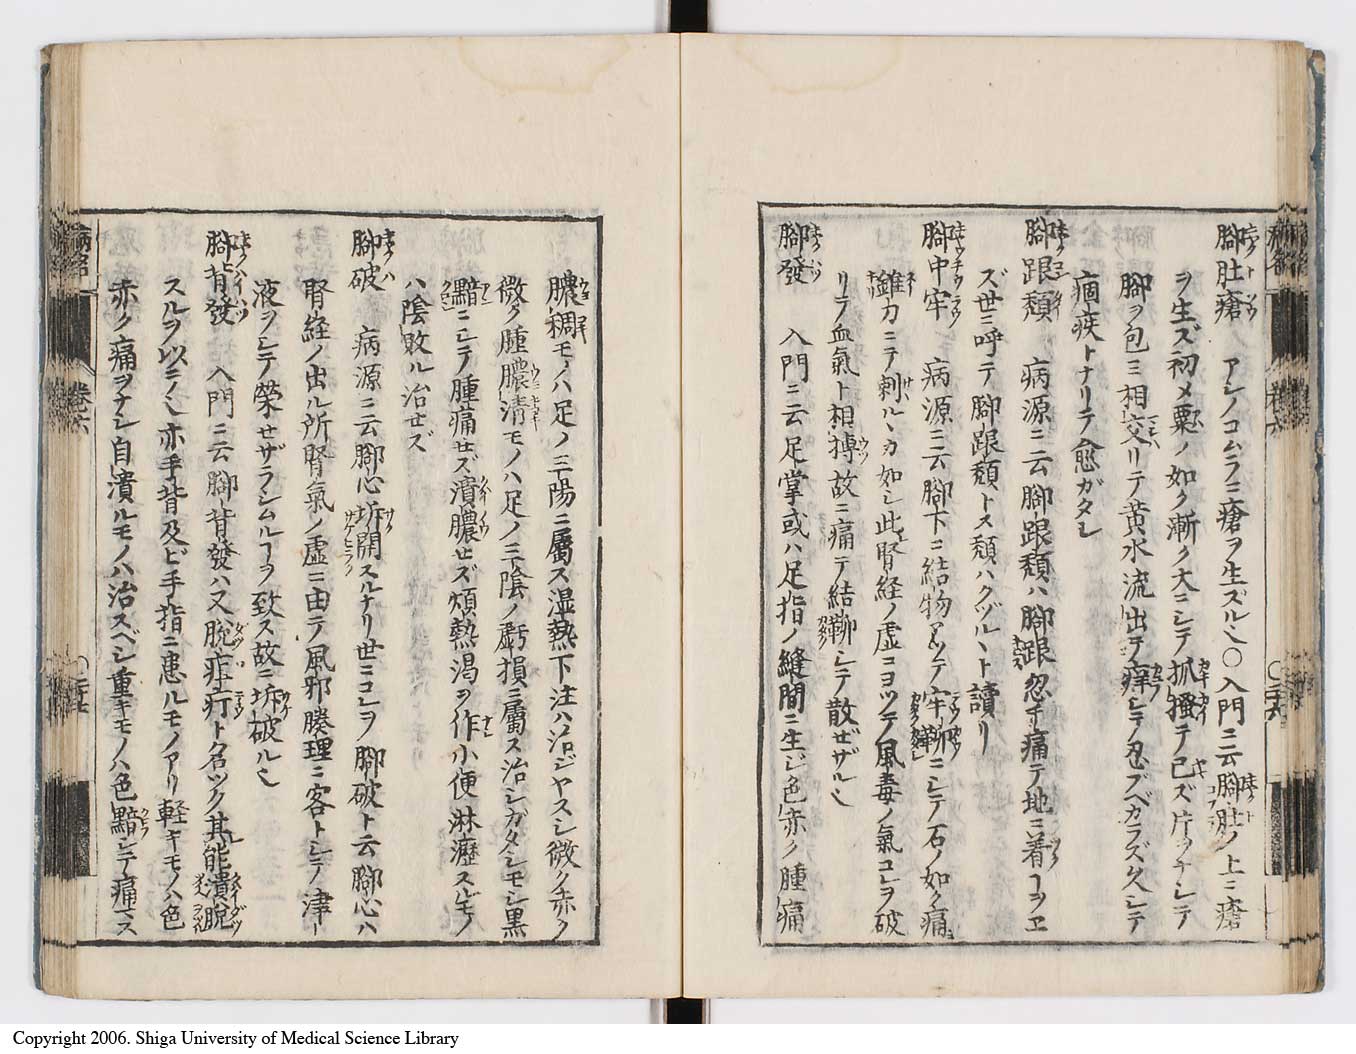 腳肚瘡 アシノコムラニ瘡ヲ生ズル也〇入門ニ云腳肚ノ上ニ瘡
ヲ生ズ初メ粟ノ如ク漸ク大ニシテ抓搔テ已ズ片ヲナシテ
腳ヲ包ミ相交リテ黄水流出テ痒シテ忍ブベカラズ久シテ
痼疾トナリテ愈ガタシ
腳跟頽 病源ニ云腳跟頽ハ腳跟忽チ痛テ地ニ着ヿヲヱ
ズ世ニ呼テ腳跟頽トス頽ハクヅルヽト讀リ
腳中牢 病源ニ云腳下ニ結物アツテ牢鞕ニシテ石ノ如ク痛
錐刀ニテ刺ルヽカ如シ此腎経ノ虚ニヨツテ風毒ノ氣コレヲ破
リテ血氣ト相搏故ニ痛テ結鞕シテ散ゼザル也
腳發 入門ニ云足掌或ハ足指ノ縫間ニ生ジ色赤ク腫痛
膿稠モノハ足ノ三陽ニ屬ス湿熱下注ハ治ジヤスシ微ク赤ク
微ク腫膿清モノハ足ノ三陰ノ虧損ニ屬ス治シガタシモシ黒
黯ニシテ腫痛セズ潰膿セズ煩熱渇ヲ作小便淋瀝スルモノ
ハ陰敗ル治セズ
腳破 病源ニ云腳心坼開スルナリ世ニコレヲ腳破ト云腳心ハ
腎経ノ出ル所腎氣ノ虚ニ由テ風邪腠理ニ客トシテ津
液ヲシテ榮セザラシムルヿヲ致ス故ニ坼破ル也
腳背發 入門ニ云腳背發ハ又脫疽疔ト名ツク其能潰脫
スルヲ以ニノ也亦手背及ビ手指ニ患ルモノアリ軽キモノハ色
赤ク痛ヲナシ自潰ルモノハ治スベシ重キモノハ色黯シテ痛マス
病名
巻六
〇二十七
巻六
〇二十六
Copyright 2006. Shiga University of Medical Science Library